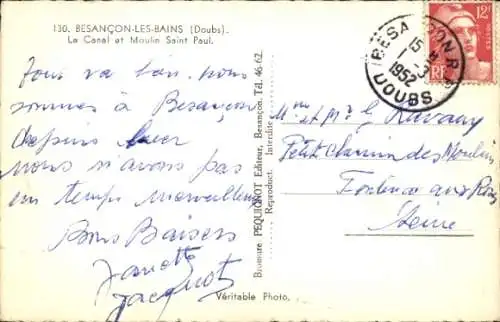 130. BESANÇON-LES-BAINS (Doubs).
Le Canal et Moulin Saint Paul.
Tout va bien. nous
sommes à Besançon
depuis hier
nous n'avons pas
un temps merveilleux
Bons Baisers
Jacquot
Bromure PEQUIGNOT Editeur, Besançon. Tél. 46-62.
Reproduct. Interdite
Véritable Photo.
12F
POSTES
RF
BESANÇON R.P.
15
1-3
1952
DOUBS
Mme et Mr
Petit Chemin des Moulins
Fontenay aux Roses
Seine